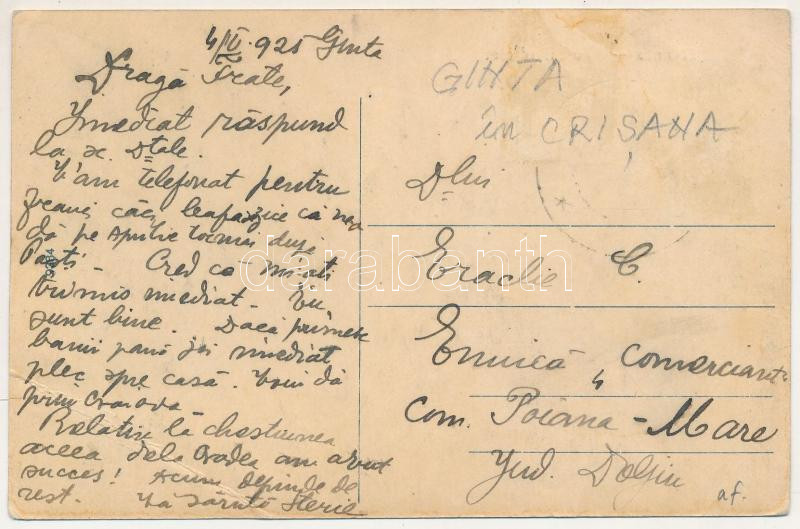 4/IV. 925 Ginta
Dragă Frate,
Imediat răspund
la sc. Dtale.
V'am telefonat pentru
căci leafa zice că ne va
da pe Aprilie tocmai după
Paști. Cred că mi-ați
trimis imediat. Eu
sunt bine. Dacă primesc
banii până joi imediat
plec spre casă. Vom da
prin Craiova
Relativ la chestiunea
aceea dela Oradea am avut
succes! Acum depinde de
rest. Vă sărută Sterie
GINTA
în CRIȘANA
Dlui
Eraclie C.
Enuică, comerciant
com. Poiana-Mare
Jud. Dolj
af.
darabanth